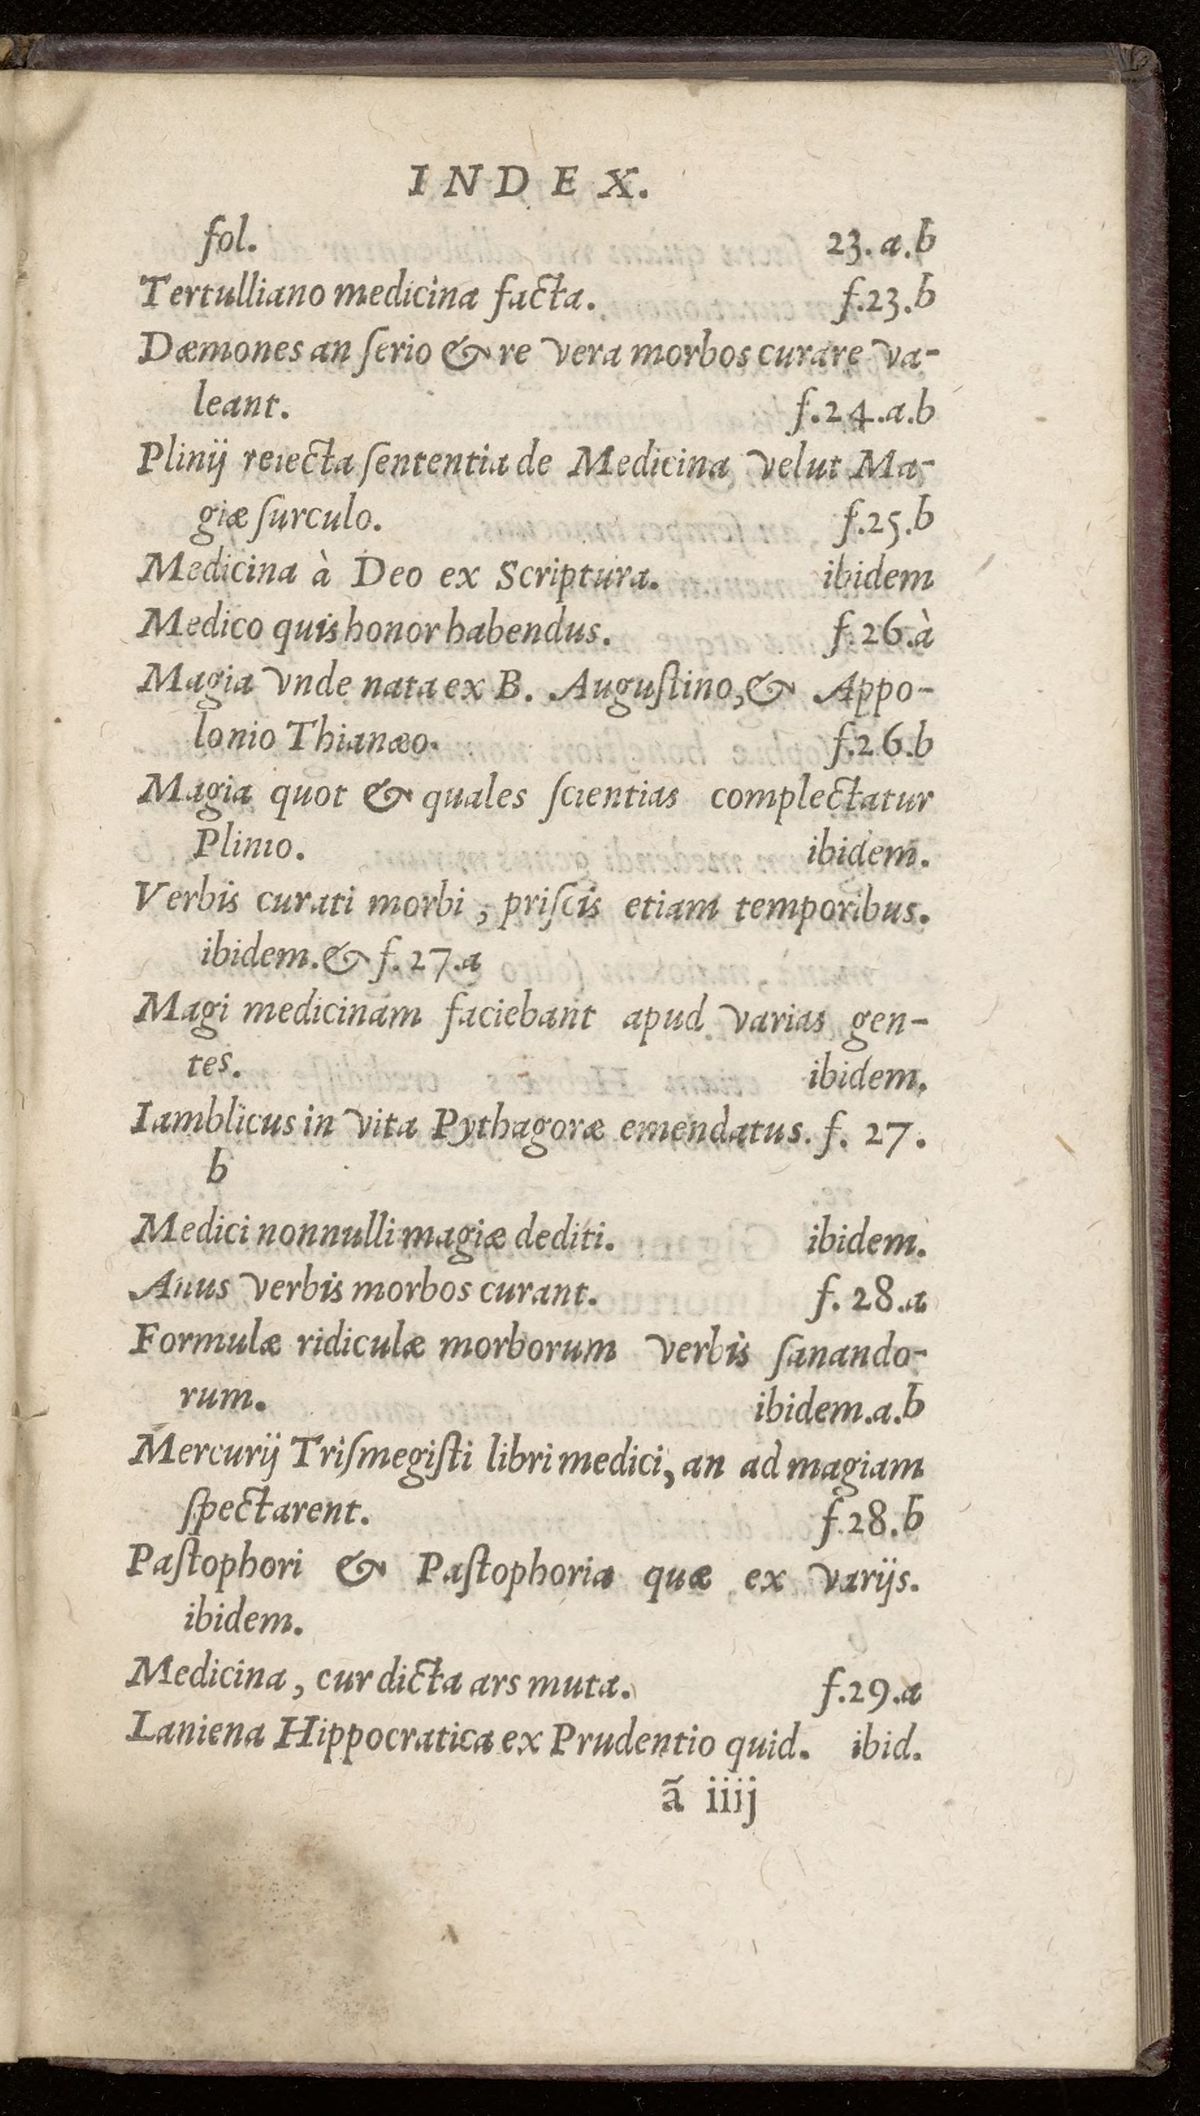 INDEX.
fol. 23.a.b
Tertulliano medicina facta. f.23.b
Dæmones an ſerio & re vera morbos curare va-
leant. f.24.a.b
Plinij reiecta ſententia de Medicina velut Ma-
giæ ſurculo. f.25.b
Medicina à Deo ex Scriptura. ibidem
Medico quis honor habendus. f.26.à
Magia vnde nata ex B. Auguſtino, & Appo-
lonio Thianæo. f.26.b
Magia quot & quales ſcientias complectatur
Plinio. ibidem.
Verbis curati morbi, priſcis etiam temporibus.
ibidem. & f.27.a
Magi medicinam faciebant apud varias gen-
tes. ibidem.
Iamblicus in vita Pythagoræ emendatus. f. 27.
b
Medici nonnulli magiæ dediti. ibidem.
Anus verbis morbos curant. f. 28.a
Formulæ ridiculæ morborum verbis ſanando-
rum. ibidem.a.b
Mercurij Triſmegiſti libri medici, an ad magiam
ſpectarent. f.28.b
Paſtophori & Paſtophoria quæ ex varijs.
ibidem.
Medicina, cur dicta ars muta. f.29.a
Laniena Hippocratica ex Prudentio quid. ibid.
ã iiij